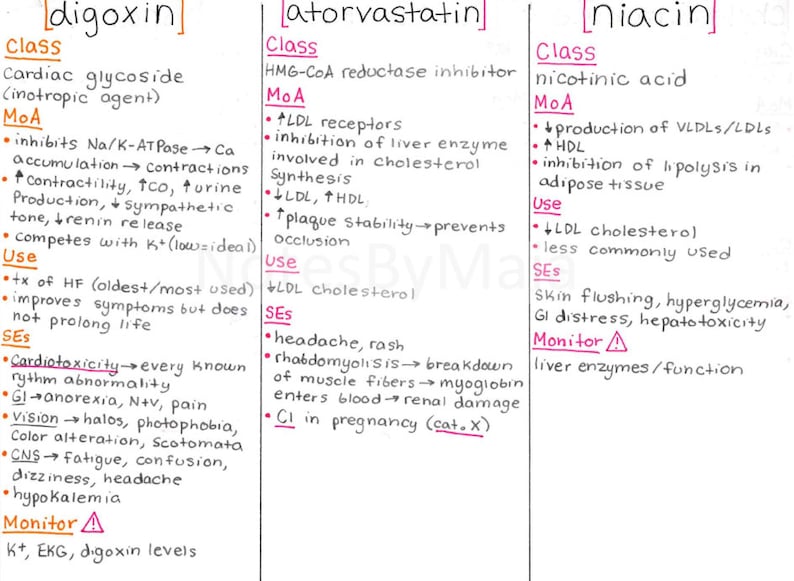 [digoxin]
Class
Cardiac glycoside
(inotropic agent)
MoA
• inhibits Na/K-ATPase → Ca
accumulation → contractions
• ↑ contractility, ↑CO, ↑ urine
Production, ↓ sympathetic
tone, ↓renin release
• competes with K+ (low=ideal)
Use
• tx of HF (oldest/most used)
• improves symptoms but does
not prolong life
SEs
• Cardiotoxicity → every known
rythm abnormality
• GI → anorexia, N+V, pain
• Vision → halos, photophobia,
Color alteration, Scotomata
• CNS → fatigue, confusion,
dizziness, headache
• hypokalemia
Monitor ⚠
K+, EKG, digoxin levels
[atorvastatin]
Class
HMG-CoA reductase inhibitor
MoA
• ↑LDL receptors
• inhibition of liver enzyme
involved in cholesterol
Synthesis
• ↓LDL, ↑HDL
• ↑plaque stability → prevents
occlusion
Use
↓LDL cholesterol
SEs
• headache, rash
• rhabdomyolisis → breakdown
of muscle fibers → myoglobin
enters blood → renal damage
• CI in pregnancy (cat. X)
[niacin]
Class
nicotinic acid
MoA
• ↓production of VLDLs/LDLs
• ↑ HDL
• inhibition of lipolysis in
adipose tissue
Use
• ↓LDL cholesterol
• less commonly used
SEs
Skin flushing, hyperglycemia,
GI distress, hepatotoxicity
Monitor ⚠
liver enzymes/function
NotesByMaia